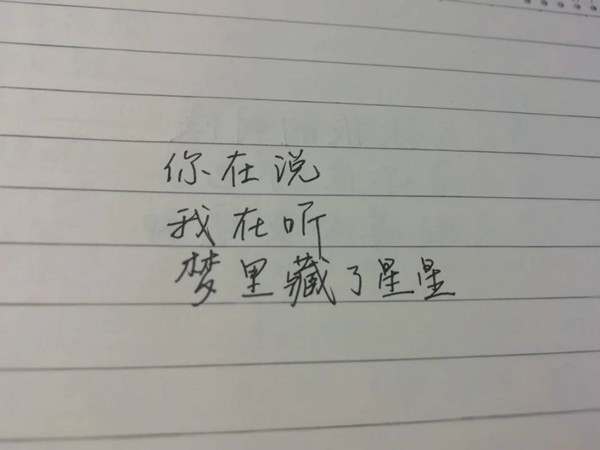 你在说
我在听
梦里藏了星星